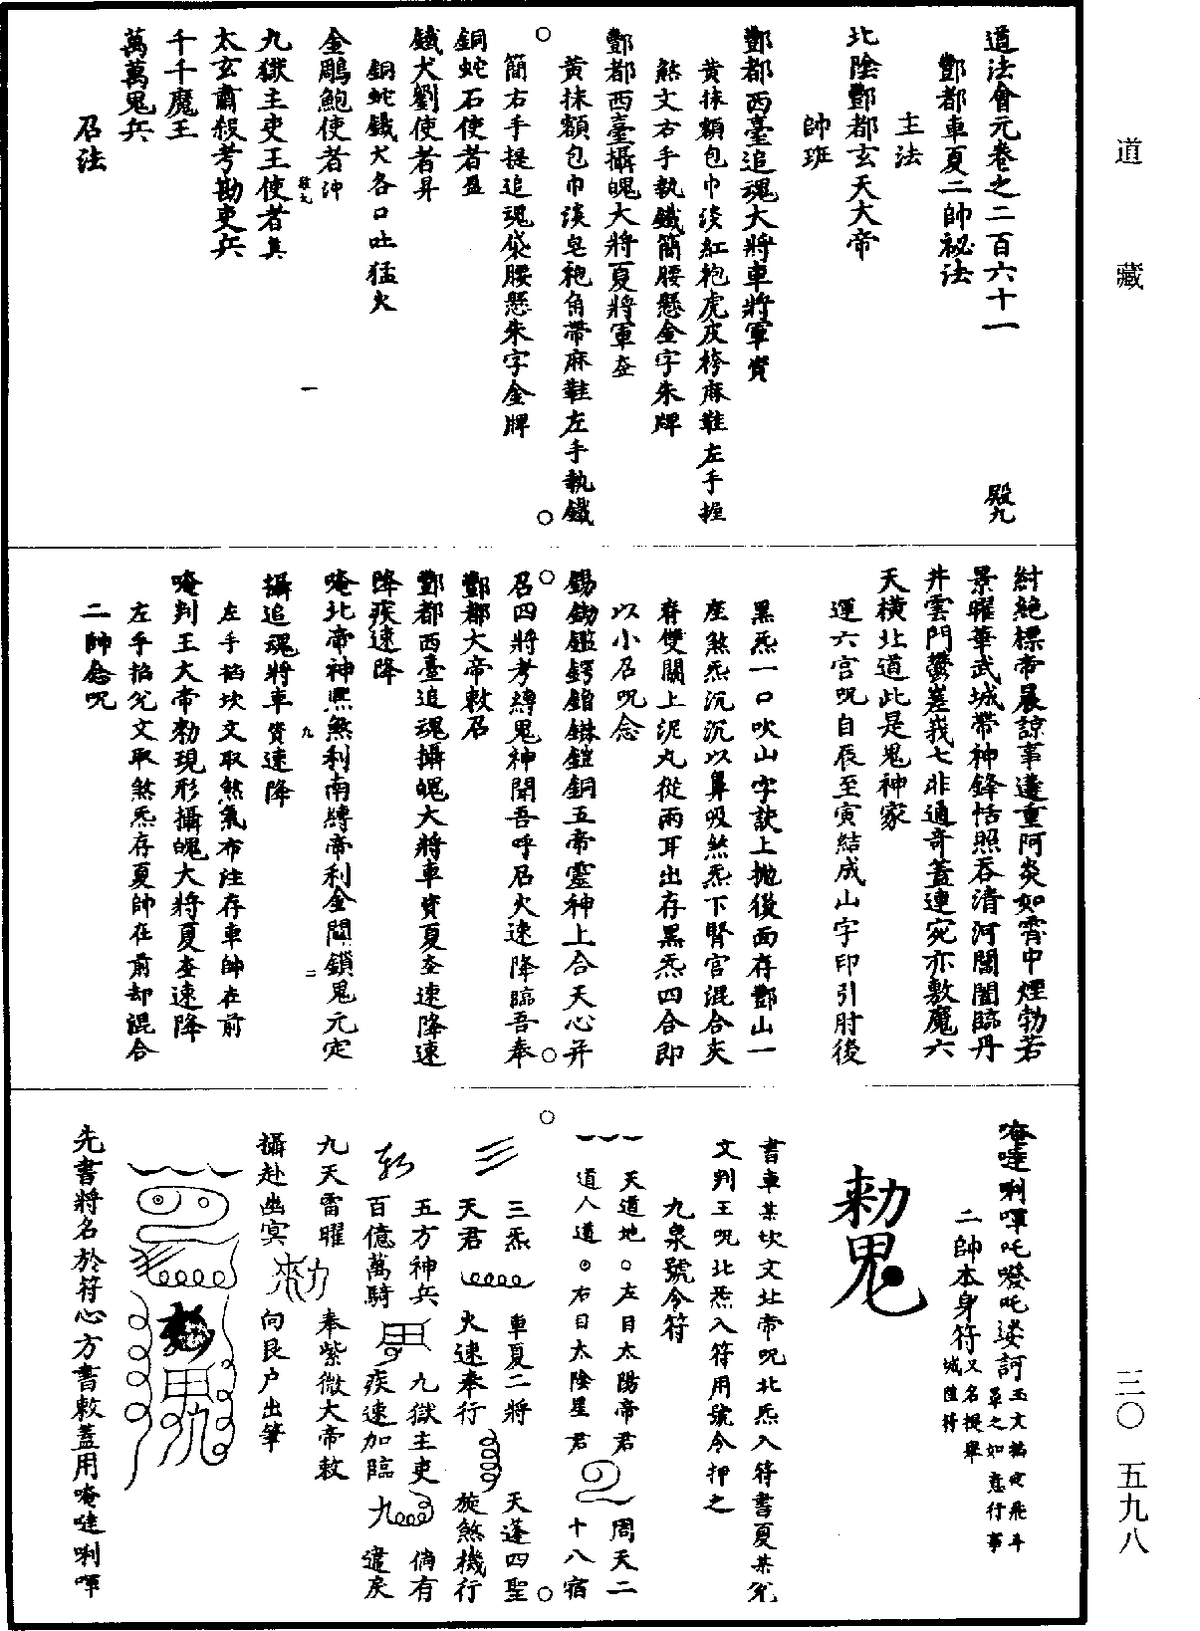 道藏
三〇 五九八
道法會元卷之二百六十一 殿九
酆都車夏二帥祕法
主法
北陰酆都玄天大帝
帥班
酆都西臺追魂大將車將軍資
黃抹額包巾淡紅袍虎皮袴麻鞋左手握
煞文右手執鐵簡腰懸金字朱牌
酆都西臺攝魄大將夏將軍奎
黃抹額包巾淡皂袍角帶麻鞋左手執鐵
簡右手提追魂袋腰懸朱字金牌
銅蛇石使者盈
鐵犬劉使者昇
銅蛇鐵犬各口吐猛火
金鵰鮑使者沖
九獄主吏王使者真
太玄肅殺考勘吏兵
千千魔王
萬萬鬼兵
召法
紂絕標帝晨諒事遘重阿炎如霄中煙勃若
景曜華武城帶神鋒恬照吞清河閶闔臨丹
井雲門鬱嵳峩七非通奇蓋連宛亦敷魔六
天橫北道此是鬼神家
運六宮呪自辰至寅結成山字印引肘後
黑炁一口吹山字訣上拋後面存酆山一
座煞炁沉沉以鼻吸煞炁下腎宮混合夾
脊雙關上泥丸從兩耳出存黑炁四合即
以小召呪念
五帝靈神上合天心并
召四將考縛鬼神聞吾呼召火速降臨吾奉
酆都大帝敕召
酆都西臺追魂攝魄大將車資夏奎速降速
降疾速降
唵北帝神煕煞利南縛帝利金閶鎖鬼元定
攝追魂將車資速降
左手掐坎文取煞氣布注存車帥在前
唵判王大帝勑現形攝魄大將夏奎速降
左手掐兊文取煞炁存夏帥在前却混合
二帥念呪
唵㗌唎㖉吒㗶吒娑訶玉文掐定飛斗罡之如意行事
二帥本身符又名提舉城隍符
勑鬼
書車某坎文北帝呪北炁入符書夏某兊
文判王呪北炁入符用號令押之
九泉號令符
天道地○左目太陽帝君 周天二
道人道○右目太陰星君 十八宿
三炁 車夏二將 天蓬四聖
天君 火速奉行 旋煞機行
五方神兵 九獄主吏 倘有
百億萬騎 疾速加臨 遣戾
九天雷曜 奉紫微大帝敕
攝赴幽冥 勑 向艮户出筆
先書將名於符心方書敕蓋用唵㗌唎㖉